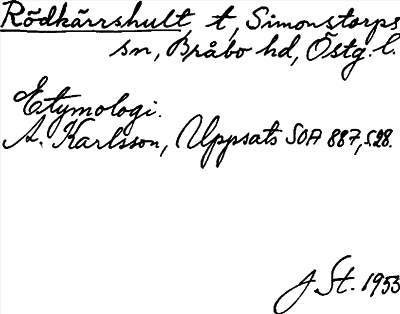 Rödkärrshult t, Simonstorps
sn, Bråbo hd, Östg. l.
Etymologi.
A. Karlsson, Uppsats SOA 887, s. 28.
J St. 1953